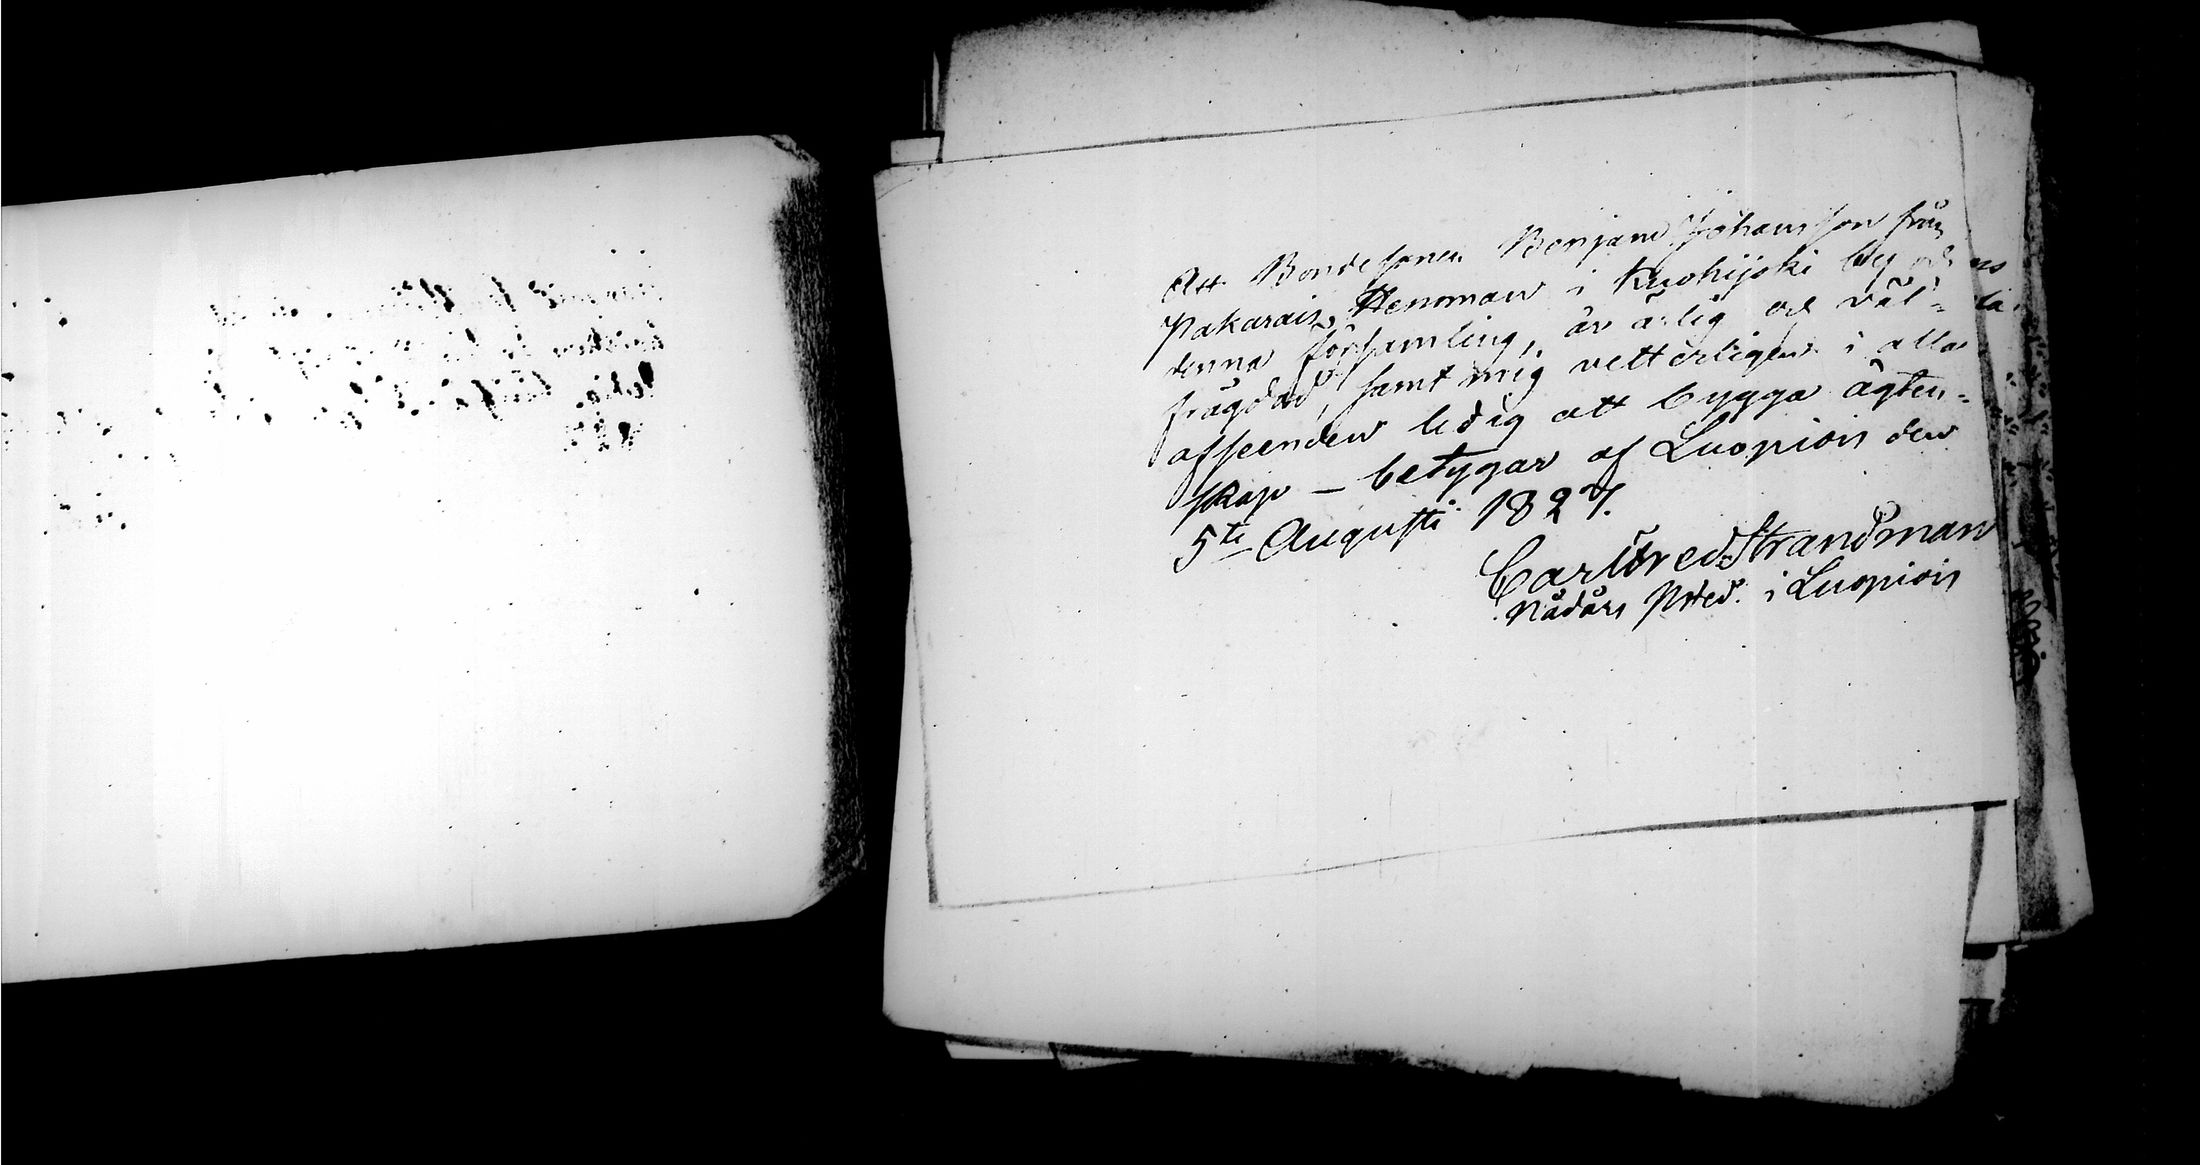 Att Bondesonen Benjam Johansson från
Pakarais Hemman i Kuohijoki by och
denna församling, är ärlig och väl-
frägdad, samt mig vetterligen i alla
afseenden ledig att bygga ägten-
skap — betygar af Luopiois den
5te Augusti 1827.
Carl Fred Strandman
Nådårs Pred. i Luopiois